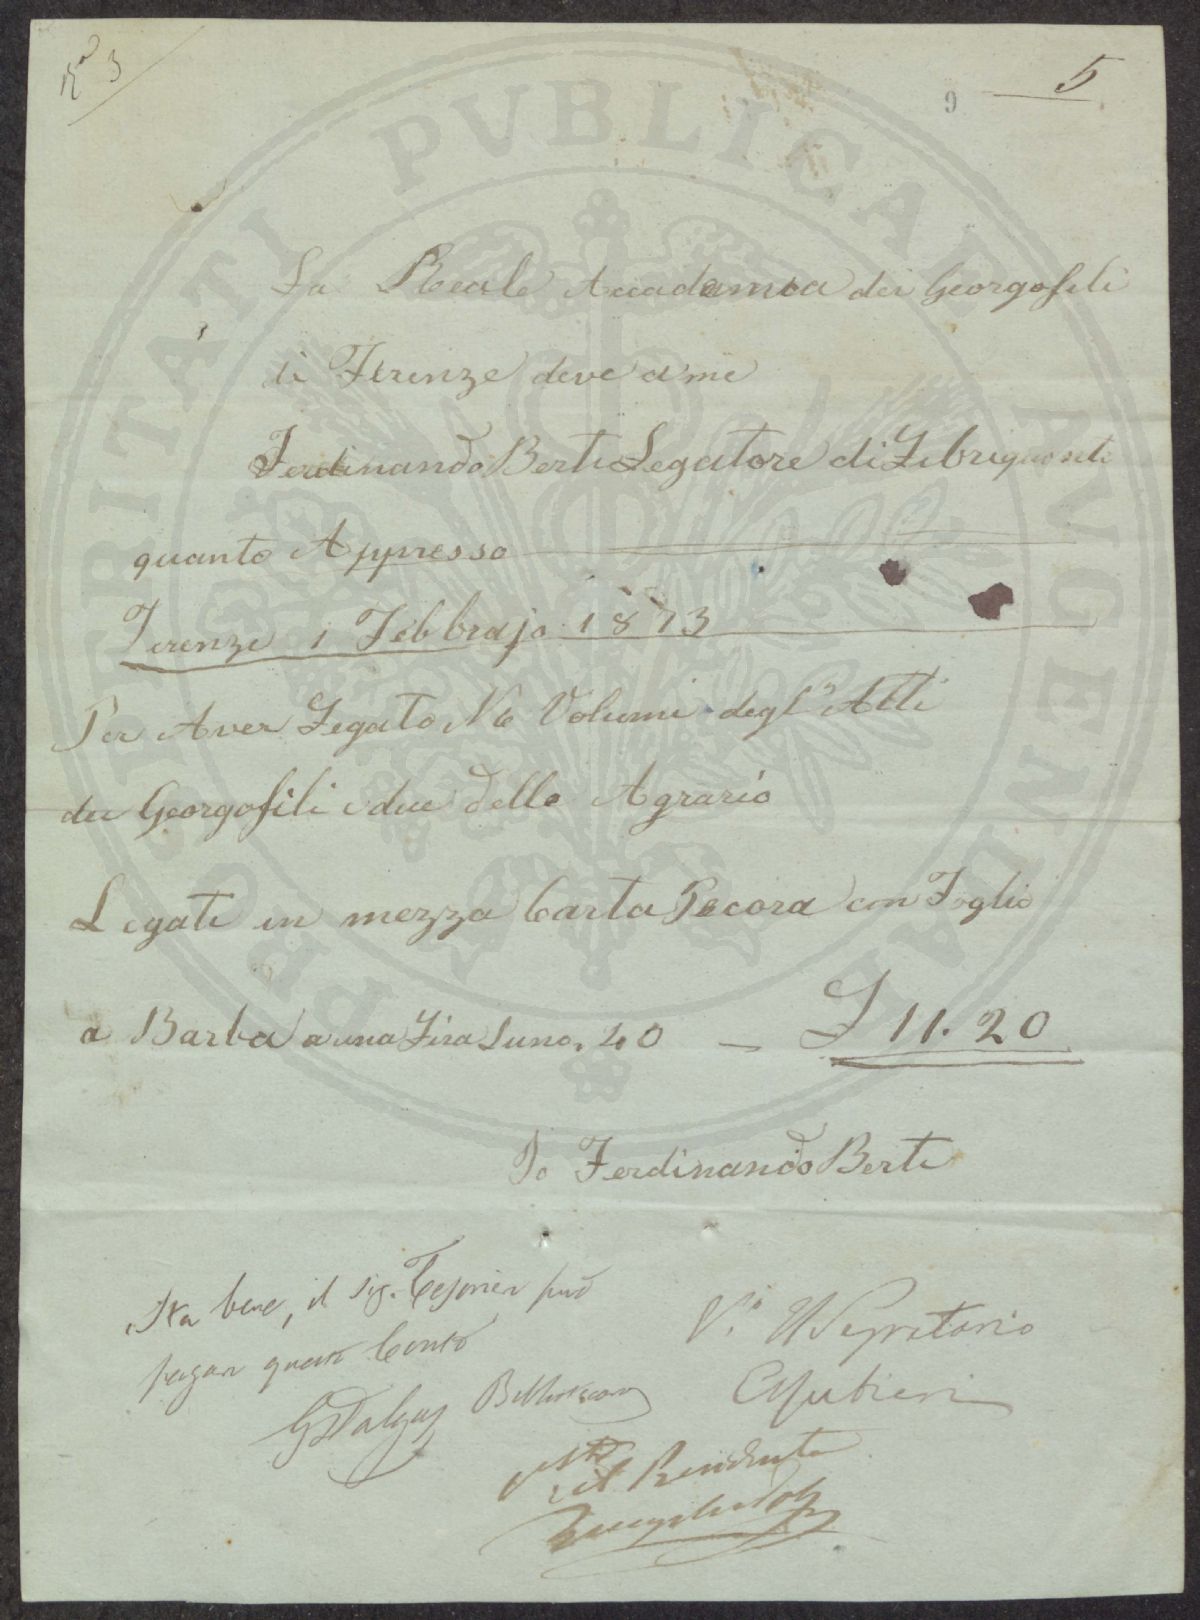 No 3
9 5
PROSPERITATI PVBLICAE AVGENDAE
La Reale Accademia dei Georgofili
di Firenze deve a me
Ferdinando Berti Legatore di Libri quanto
quanto Appresso
Firenze 1 Febbrajo 1873
Per Aver Legato N 6 Volumi degl' Atti
dei Georgofili e due dello Agrario
Legati in mezza Carta Pecora con Foglio
a Barba a una Lira Luno. 40 — L 11.20
Io Ferdinando Berti
Sta bene, il sig. Tesoriere può
pagare questo Conto
Bibliotecario
V.o Il Segretario
Visto il Presidente